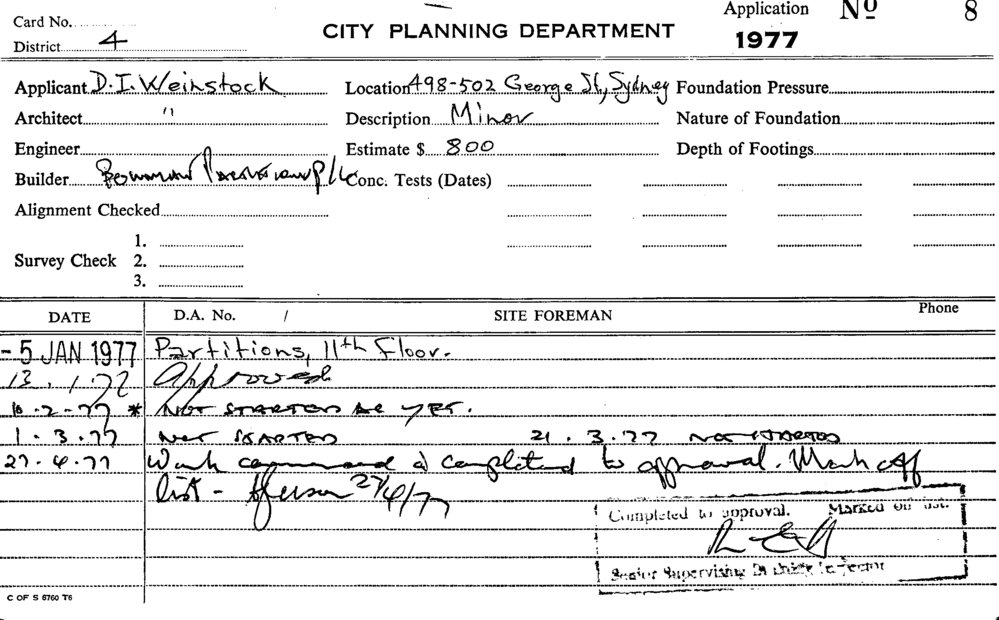 Card No.
District 4
CITY PLANNING DEPARTMENT
Application No 8
1977
Applicant D.I. Weinstock
Location 498-502 George St, Sydney
Foundation Pressure
Architect "
Description Minor
Nature of Foundation
Engineer
Estimate $ 800
Depth of Footings
Builder
Conc. Tests (Dates)
Alignment Checked
Survey Check
1.
2.
3.
DATE D.A. No. / SITE FOREMAN Phone
- 5 JAN 1977 Partitions, 11th Floor.
13.1.77 Approved
2.77 * NOT STARTED AS YET.
1.3.77 NOT STARTED 21.3.77 NOT STARTED
27.4.77 Work commenced & completed to approval. Mark off
list - 27/4/77
Completed to approval. Marked off list.
Senior Supervising Building Inspector
C OF S 6760 T6